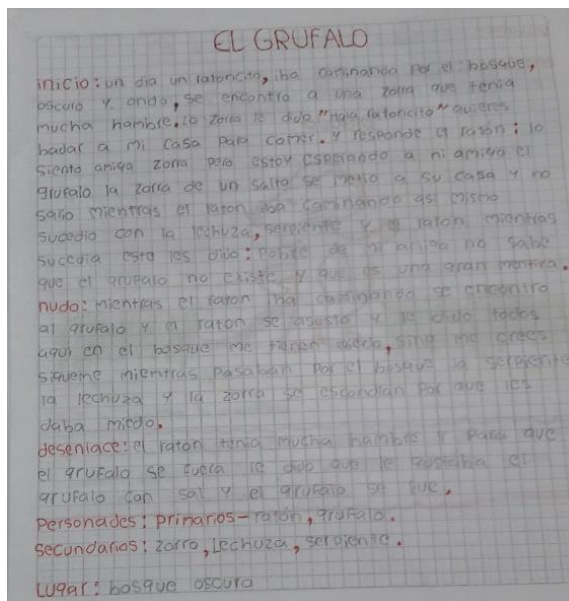 EL GRUFALO
inicio: un dia un ratoncito, iba caminando por el bosque,
oscuro y ondo, se encontro a una zorra que tenia
mucha hambre. la zorra le dijo "Hola ratoncito" quieres
badar a mi casa para comer. y responde el ratón: lo
siento amiga zorra pero estoy esperando a mi amigo el
grufalo la zorra de un salto se metio a su casa y no
salio mientras el raton iba caminando asi mismo
sucedio con la lechuza, serpiente y el raton mientras
sucedia esto les dijo: pobre de mi amiga no sabe
que el grufalo no existe y que es una gran mentira.
nudo: mientras el raton iba caminando se encontro
al grufalo y el raton se asusto y le dido todos
aqui en el bosque me tienen miedo, sino me crees
sigueme mientras pasaban por el bosque la serpiente
la lechuza y la zorra se escondian por que les
daba miedo.
desenlace: el raton tenia mucha hambre y para que
el grufalo se fuera le dijo que le gustaba el
grufalo con sal y el grufalo se fue.
personades: primarios-ratón, grufalo.
secundarios: zorro, lechuza, serpiente.
Lugar: bosque oscuro